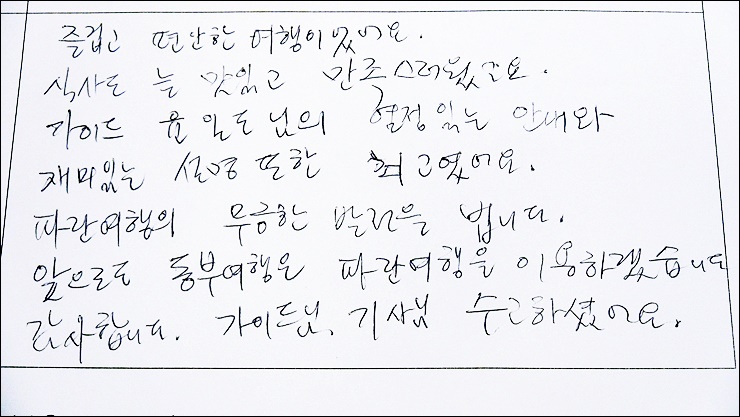 즐겁고 편안한 여행이었어요.
식사도 늘 맛있고 만족스러웠고요.
가이드 윤일도님의 열정있는 안내와
재미있는 설명 또한 최고였어요.
파란여행의 무궁한 발전을 빕니다.
앞으로도 동부여행은 파란여행을 이용하겠습니다
감사합니다. 가이드님, 기사님 수고하셨어요.